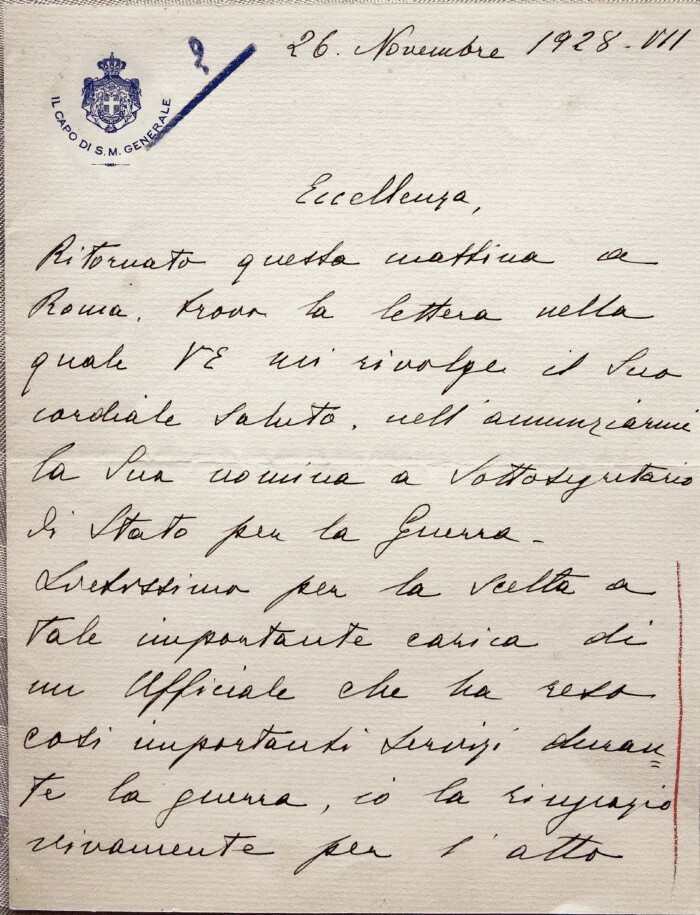 26. Novembre 1928-VII
2
IL CAPO DI S.M. GENERALE
Eccellenza,
Ritornato questa mattina a
Roma, trovo la lettera nella
quale VE mi rivolge il Suo
cordiale saluto, nell'annunziarmi
la Sua nomina a Sottosegretario
di Stato per la Guerra -
Lietissimo per la scelta a
tale importante carica di
un Ufficiale che ha reso
così importanti servizi duran=
te la guerra, io la ringrazio
vivamente per l'atto